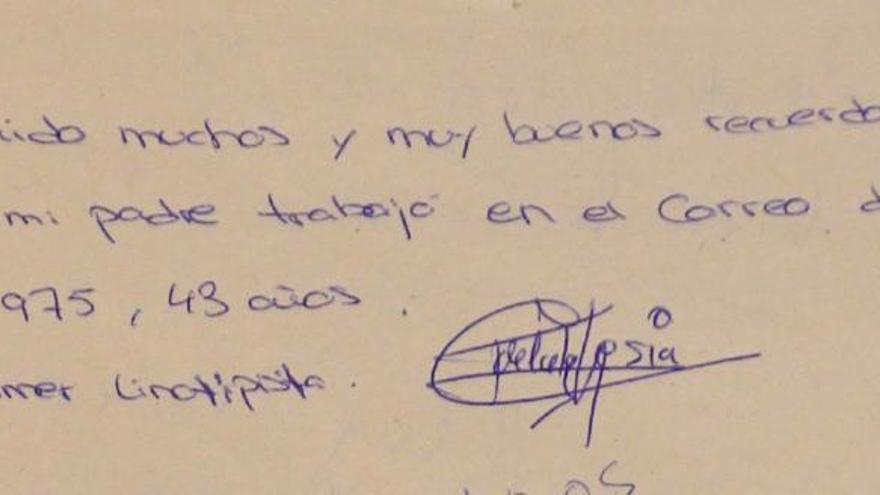 ido muchos y muy buenos recuerdo
mi padre trabajó en el Correo d
975, 43 años.
mer Linotipista.